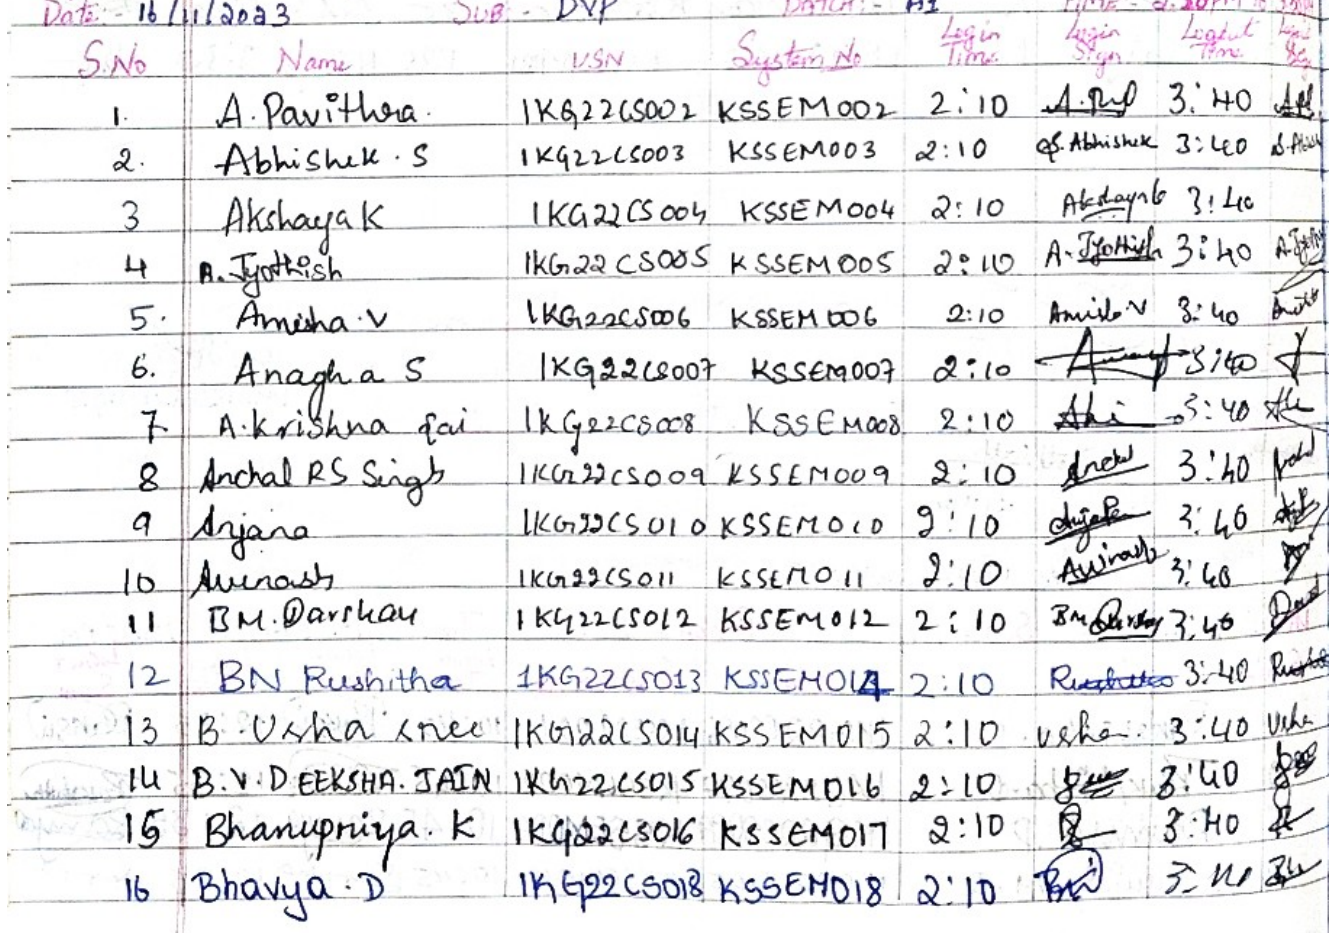 Date: 16/11/2023 SUB - DVP BATCH: A1 TIME - 2.20PM
S.No Name USN System No Login Time Login Sign Logout Time
1. A. Pavithra. 1KG22CS002 KSSEM002 2:10 3:40
2. Abhishek. S 1KG22CS003 KSSEM003 2:10 S. Abhishek 3:40
3 Akshaya K 1KG22CS004 KSSEM004 2:10 3:40
4 A. Jyothish 1KG22CS005 KSSEM005 2:10 A. Jyothish 3:40
5. Amisha. V 1KG22CS006 KSSEM006 2:10 3:40
6. Anagha S 1KG22CS007 KSSEM007 2:10 3:40
7. A. Krishna Sai 1KG22CS008 KSSEM008 2:10 3:40
8 Anchal RS Singh 1KG22CS009 KSSEM009 2:10 3:40
9 Anjana 1KG22CS010 KSSEM010 2:10 3:40
10 Avinash 1KG22CS011 KSSEM011 2:10 Avinash 3:40
11 B M. Darshan 1KG22CS012 KSSEM012 2:10 3:40
12 BN Rushitha 1KG22CS013 KSSEM014 2:10 3:40
13 B. Usha sree 1KG22CS014 KSSEM015 2:10 Usha 3:40 Usha
14 B. V. DEEKSHA. JAIN 1KG22CS015 KSSEM016 2:10 3:40
15 Bhanupriya. K 1KG22CS016 KSSEM017 2:10 3:40
16 Bhavya. D 1KG22CS018 KSSEM018 2:10